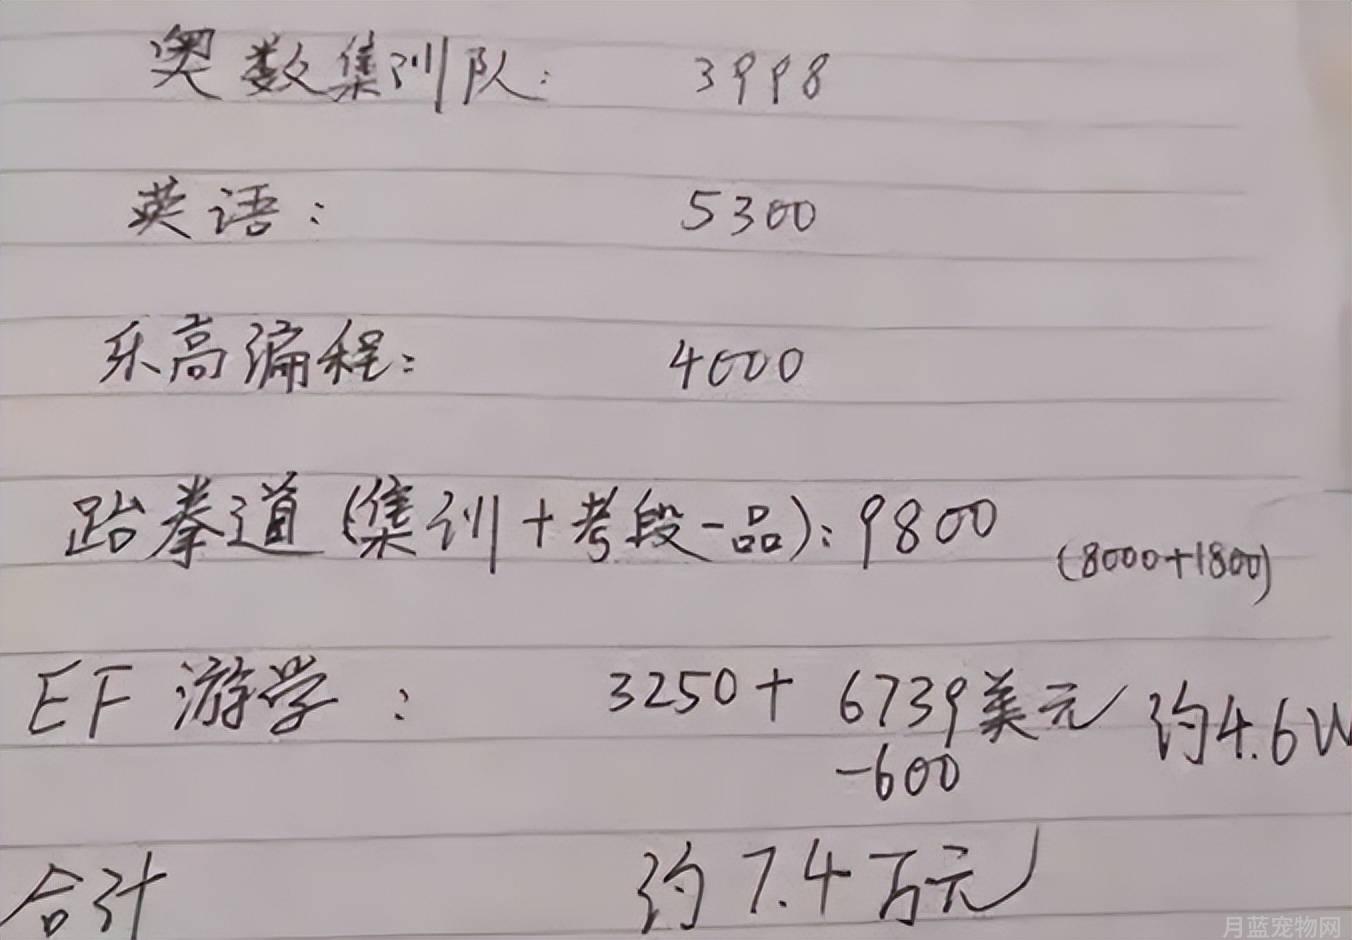 奥数集训队: 3998
英语: 5300
乐高编程: 4000
跆拳道(集训+考段一品): 9800 (8000+1800)
EF 游学: 3250+ 6739美元 约4.6W
-600
合计 约7.4万元
月蓝宠物网